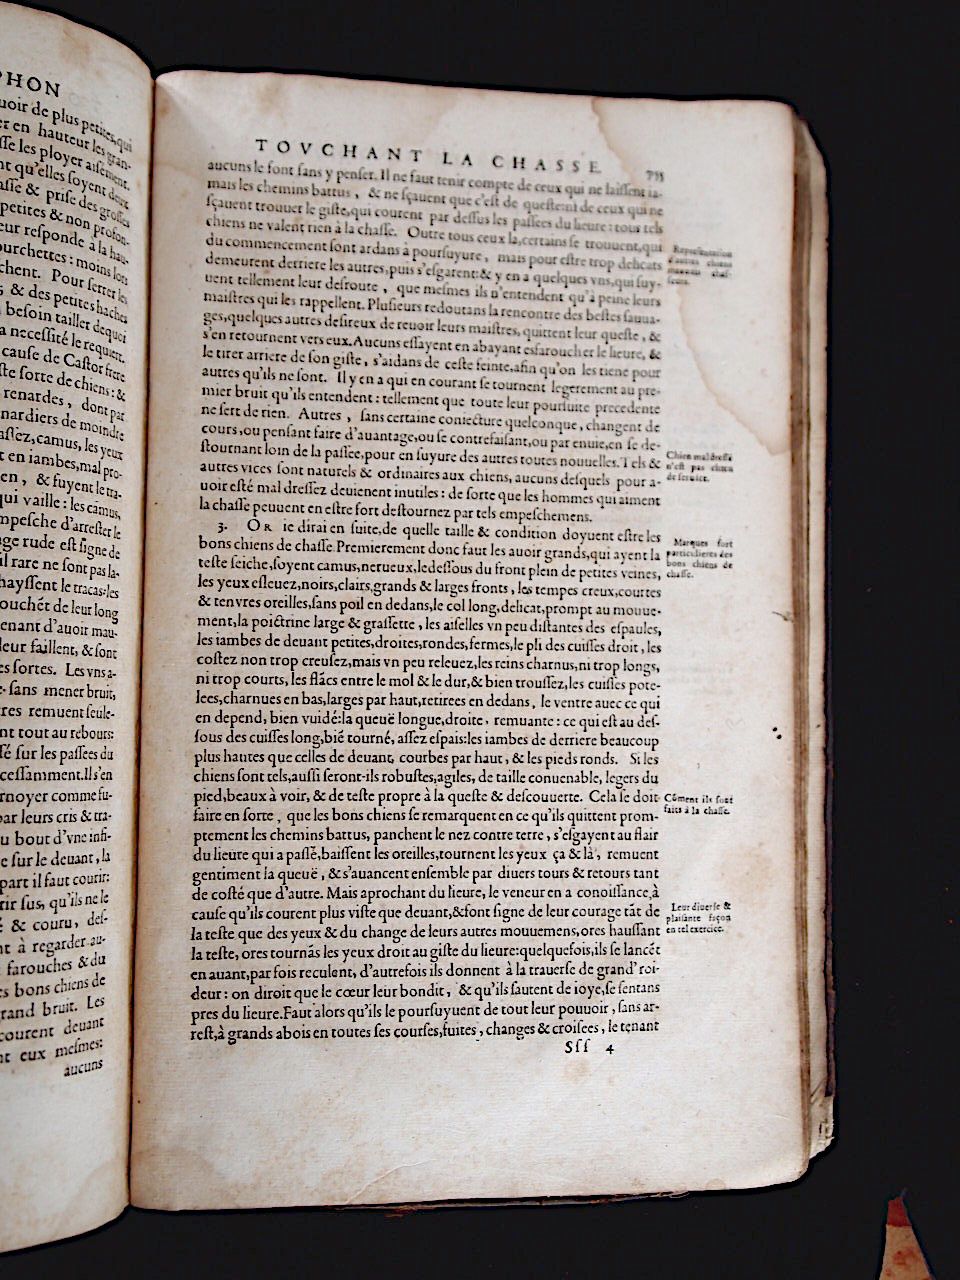 PHON
uoir de plus petites, qui
er en hauteur les gran-
sse les ployer aisément.
nt qu'elles soyent deux
asse & prise des grosses
petites & non profon-
eur responde a la hau-
ourchettes: moins lors
chent. Pour serrer les
s, & des petites haches
besoin tailler dequoi
a necessité le requiert.
cause de Castor frere
ste sorte de chiens: &
renardes, dont par
nardiers de moindre
assez, camus, les yeux
t en iambes, mal pro-
en, & fuyent le tra-
qui vaille: les camus,
mpesche d'arrester le
ge rude est signe de
il rare ne sont pas la-
hayssent le tracas: les
ouchét de leur long
enant d'auoir mau-
leur faillent, & sont
es sortes. Les vns a-
sans mener bruit,
res remuent seule-
nt tout au rebours:
sé sur les passees du
cessamment. Ils s'en
rnoyer comme fu-
par leurs cris & tra-
u bout d'vne infi-
e sur le deuant, la
part il faut courir:
rir sus, qu'ils ne le
é & couru, des-
nt à regarder au-
farouches & du
s bons chiens de
rand bruit. Les
courent deuant
nt eux mesmes:
aucuns
TOVCHANT LA CHASSE.
aucuns le font sans y penser. Il ne faut tenir compte de ceux qui ne laissent ia-
mais les chemins battus, & ne sçauent que c'est de queste: ni de ceux qui ne
sçauent trouuer le giste, qui courent par dessus les passees du lieure: tous tels
chiens ne valent rien à la chasse. Outre tous ceux la, certains se trouuent, qui
du commencement sont ardans à poursuyure, mais pour estre trop delicats
demeurent derriere les autres, puis s'esgarent: & y en a quelques vns, qui suy-
uent tellement leur desroute, que mesmes ils n'entendent qu'à peine leurs
maistres qui les rappellent. Plusieurs redoutans la rencontre des bestes sauua-
ges, quelques autres desireux de reuoir leurs maistres, quittent leur queste, &
s'en retournent vers eux. Aucuns essayent en abayant esfaroucher le lieure, &
le tirer arriere de son giste, s'aidans de ceste feinte, afin qu'on les tiene pour
autres qu'ils ne sont. Il y en a qui en courant se tournent legerement au pre-
mier bruit qu'ils entendent: tellement que toute leur poursuite precedente
ne sert de rien. Autres, sans certaine coniecture quelconque, changent de
cours, ou pensant faire d'auantage, ou se contrefaisant, ou par enuie, en se de-
stournant loin de la passee, pour en suyure des autres toutes nouuelles. Tels &
autres vices sont naturels & ordinaires aux chiens, aucuns desquels pour a-
uoir esté mal dressez deuienent inutiles: de sorte que les hommes qui aiment
la chasse peuuent en estre fort destournez par tels empeschemens.
3. OR ie dirai en suite, de quelle taille & condition doyuent estre les
bons chiens de chasse. Premierement donc faut les auoir grands, qui ayent la
teste seiche, soyent camus, nerueux, le dessous du front plein de petites veines,
les yeux esleuez, noirs, clairs, grands & larges fronts, les tempes creux, courtes
& tenvres oreilles, sans poil en dedans, le col long, delicat, prompt au mouue-
ment, la poictrine large & grassette, les aiselles vn peu distantes des espaules,
les iambes de deuant petites, droites, rondes, fermes, le pli des cuisses droit, les
costez non trop creusez, mais vn peu releuez, les reins charnus, ni trop longs,
ni trop courts, les flãcs entre le mol & le dur, & bien troussez, les cuisses pote-
lees, charnues en bas, larges par haut, retirees en dedans, le ventre auec ce qui
en depend, bien vuidé: la queuë longue, droite, remuante: ce qui est au des-
sous des cuisses long, bié tourné, assez espais: les iambes de derriere beaucoup
plus hautes que celles de deuant, courbes par haut, & les pieds ronds. Si les
chiens sont tels, aussi seront-ils robustes, agiles, de taille conuenable, legers du
pied, beaux à voir, & de teste propre à la queste & descouuerte. Cela se doit
faire en sorte, que les bons chiens se remarquent en ce qu'ils quittent prom-
ptement les chemins battus, panchent le nez contre terre, s'esgayent au flair
du lieure qui a passé, baissent les oreilles, tournent les yeux ça & là, remuent
gentiment la queuë, & s'auancent ensemble par diuers tours & retours tant
de costé que d'autre. Mais aprochant du lieure, le veneur en a conoissance, à
cause qu'ils courent plus viste que deuant, & font signe de leur courage tãt de
la teste que des yeux & du change de leurs autres mouuemens, ores haussant
la teste, ores tournãs les yeux droit au giste du lieure: quelquefois, ils se lancét
en auant, par fois reculent, d'autrefois ils donnent à la trauerse de grand' roi-
deur: on diroit que le cœur leur bondit, & qu'ils sautent de ioye, se sentans
pres du lieure. Faut alors qu'ils le poursuyuent de tout leur pouuoir, sans ar-
rest, à grands abois en toutes ses courses, fuites, changes & croisees, le tenant
Sss 4
d'autres chiens
Chien mal dressé
n'est pas chien
de seruice.
Marques fort
particulieres des
bons chiens de
chasse.
Cõment ils sont
faits à la chasse.
Leur diuerse &
plaisante façon
en tel exercice.